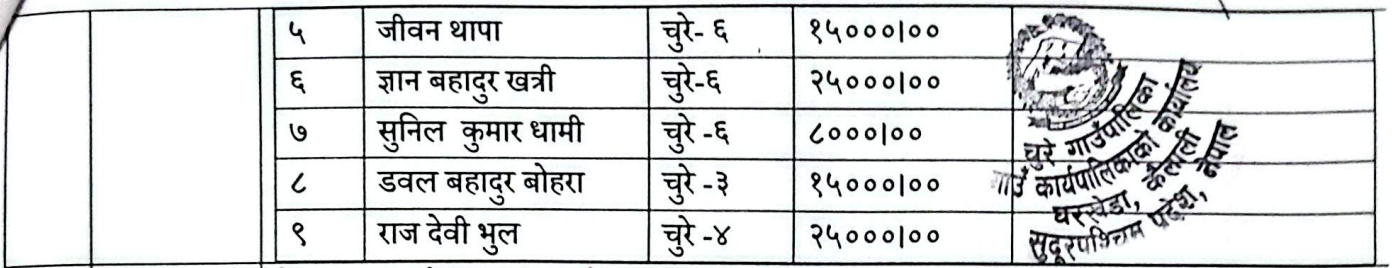 ५ जीवन थापा चुरे- ६ १५०००|००
६ ज्ञान बहादुर खत्री चुरे-६ २५०००|००
७ सुनिल कुमार धामी चुरे -६ ८०००|००
८ डवल बहादुर बोहरा चुरे -३ १५०००|००
९ राज देवी भुल चुरे -४ २५०००|००
चुरे गाउँपालिका
गाउँ कार्यपालिकाको कार्यालय
घरखेडा, कैलाली
सुदूरपश्चिम प्रदेश, नेपाल